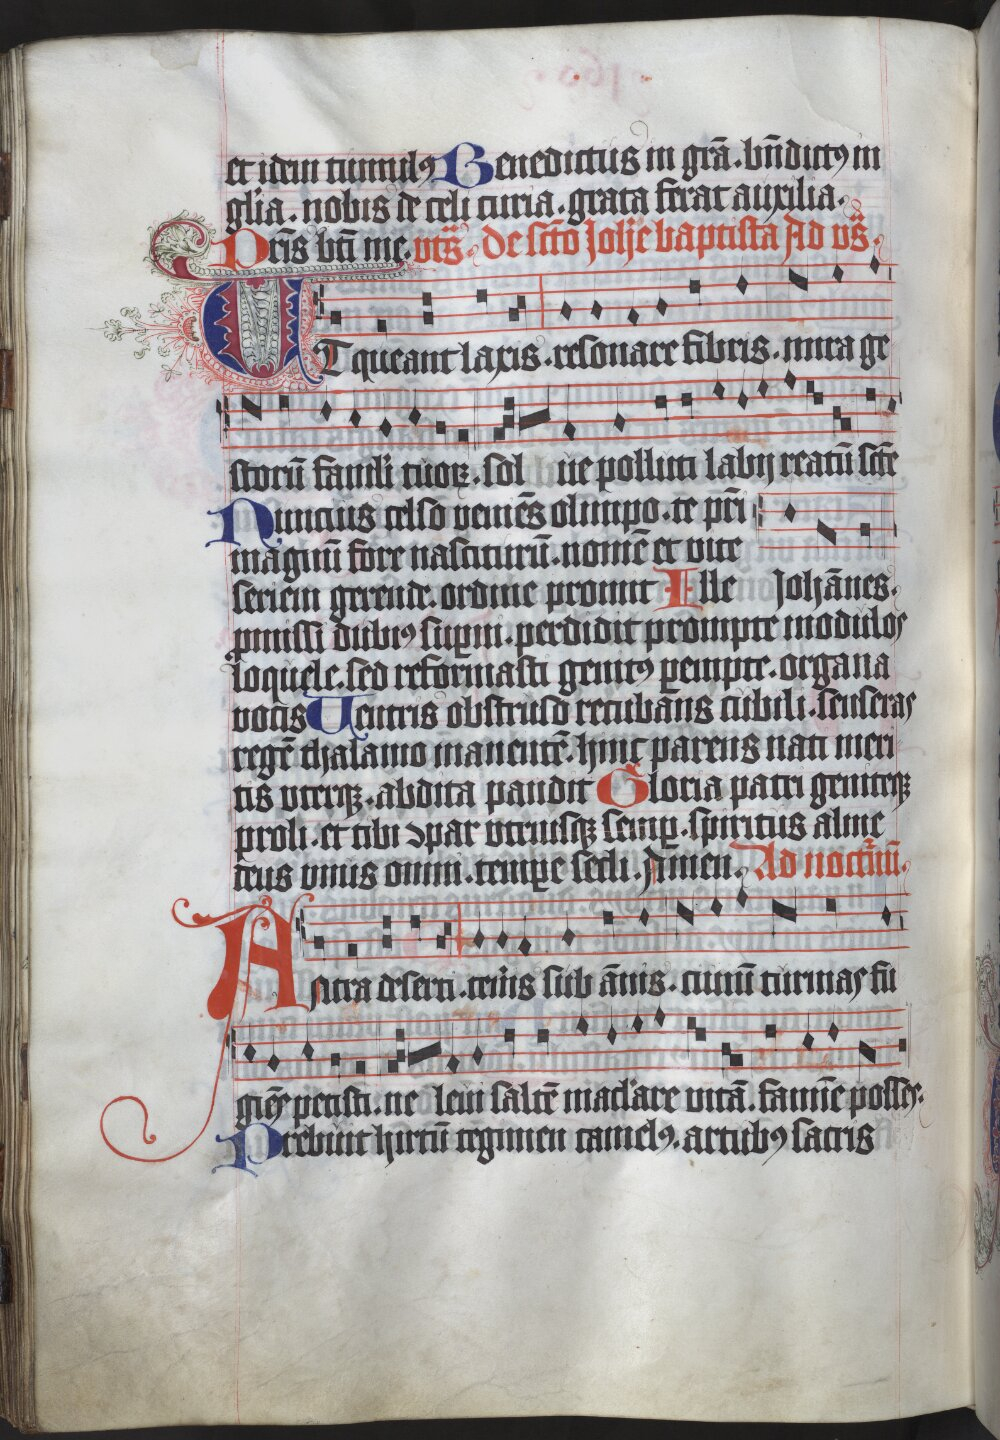 et idem tumulꝰ Benedictus in grā. bn̄dictꝰ in
glīa. nobis de celi curia. grata ferat auxilia.
Pris vti me. vts̄. De scto Joh̄e baptista Ad vs̄.
UT queant laxis. resonare fibris. mira ge
storū famuli tuoꝝ. sol ue polluti labij reatū scte
Nuncius celso veniēs olimpo. te pr̄i
magnū fore nasciturū. nomē et vite
seriem gerende. ordine promit Ille Johānes.
pmissi dubiꝰ suꝑni. perdidit prompte modulos
loquele. sed reformasti genitꝰ ꝑempte. organa
vocis Uentris obstruso recubans cubili. senseras
regē thalamo manentē. hinc parens nati meri
tis vterqꝫ. abdita pandit Gloria patri geniteqꝫ
proli. et tibi ꝯpar vtriusqꝫ semꝑ. spiritus alme
deus vnus omni. tempore secli. Amen. Ad noctūū.
Antra deserti. teneris sub ānis. ciuiū turmas fu
giēs petisti. ne leui saltē maclare vitā. famīe posses.
Prebuit hirtū tegimen camelꝰ. artubꝰ sacris